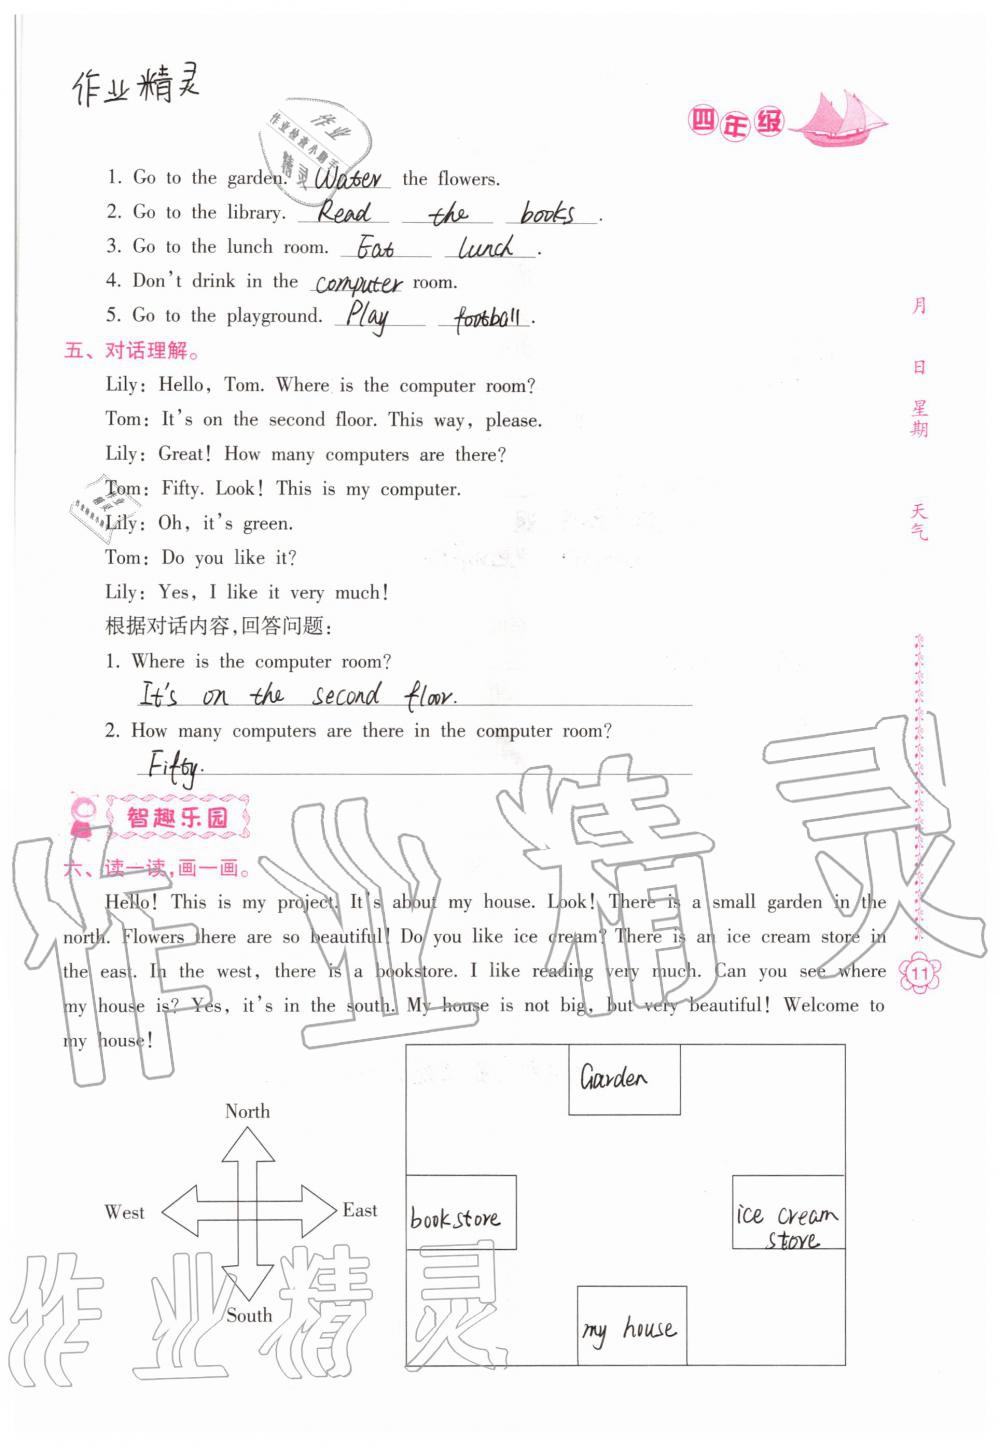 作业精灵
作业
作业检查小助手
精灵
四年级
1. Go to the garden. Water the flowers.
2. Go to the library. Read the books.
3. Go to the lunch room. Eat lunch.
4. Don't drink in the computer room.
5. Go to the playground. Play football.
五、对话理解。
Lily: Hello, Tom. Where is the computer room?
Tom: It's on the second floor. This way, please.
Lily: Great! How many computers are there?
Tom: Fifty. Look! This is my computer.
Lily: Oh, it's green.
Tom: Do you like it?
Lily: Yes, I like it very much!
根据对话内容,回答问题:
1. Where is the computer room?
It's on the second floor.
2. How many computers are there in the computer room?
Fifty.
月
日
星期
天气
智趣乐园
六、读一读,画一画。
Hello! This is my project. It's about my house. Look! There is a small garden in the
north. Flowers there are so beautiful! Do you like ice cream? There is an ice cream store in
the east. In the west, there is a bookstore. I like reading very much. Can you see where
my house is? Yes, it's in the south. My house is not big, but very beautiful! Welcome to
my house!
11
作业精灵
North
West
East
South
Garden
bookstore
ice cream
store
my house
作业精灵